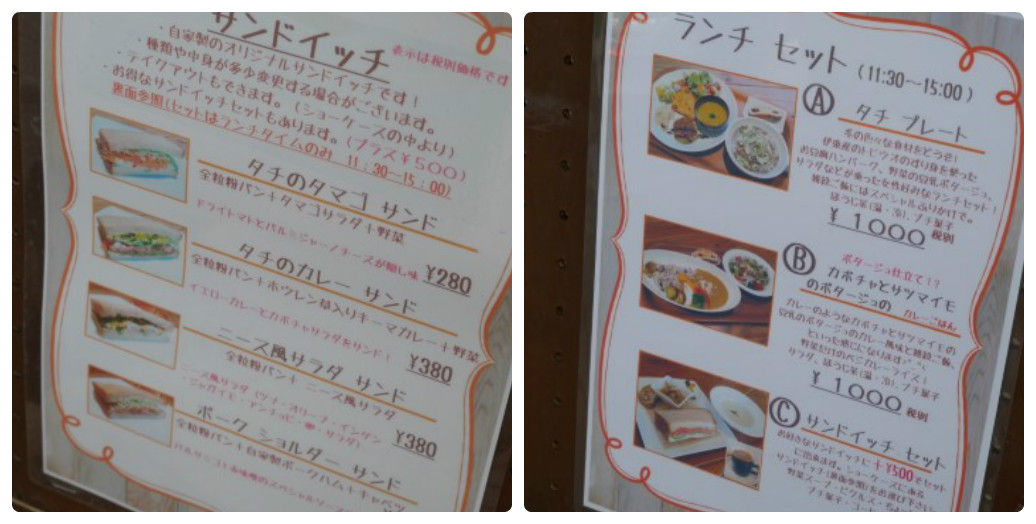 サンドイッチ
表示は税別価格です
・自家製のオリジナルサンドイッチです！
・種類や中身が多少変更する場合がございます。
・テイクアウトもできます。(ショーケースの中より)
・お得なサンドイッチセットもあります。(プラス¥500)
裏面参照(セットはランチタイムのみ 11:30~15:00)
タチのタマゴ サンド
全粒粉パン+タマゴサラダ+野菜
ドライトマトとパルミジャーノチーズが隠し味
¥280
タチのカレー サンド
全粒粉パン+ホウレン草入りキーマカレー+野菜
イエローカレーとカボチャサラダをサンド！
¥380
ニース風サラダ サンド
全粒粉パン+ニース風サラダ
ニース風サラダ(ツナ・オリーブ・インゲン
・ジャガイモ・アンチョビ・卵・サラダ)
¥380
ポーク ショルダー サンド
全粒粉パン+自家製ポークハム+キャベツ
ランチ セット (11:30~15:00)
Ⓐ タチ プレート
冬の色々な食材をどうぞ！
伊東産のトビウオのすり身を使った
お豆腐ハンバーグ、野菜の豆乳ポタージュ、
サラダなどが乗った女性好みなランチセット！
雑穀ご飯にはスペシャルふりかけで。
ほうじ茶(温・冷)、プチ菓子
¥1000 税別
Ⓑ ポタージュ仕立て!?
カボチャとサツマイモ
のポタージュの カレーごはん
カレーのようなカボチャとサツマイモの
豆乳のポタージュのカレー風味と雑穀ご飯、
といった感じになります^^
野菜だけのベジカレーライス！
サラダ、ほうじ茶(温・冷)、プチ菓子
¥1000 税別
Ⓒ サンドイッチ セット
お好きなサンドイッチに+¥500でセット
に出来ます。ショーケースにある
サンドイッチ(裏面参照)をお選び下さい。
野菜スープ・ピクルス・
プチ菓子・コーヒー